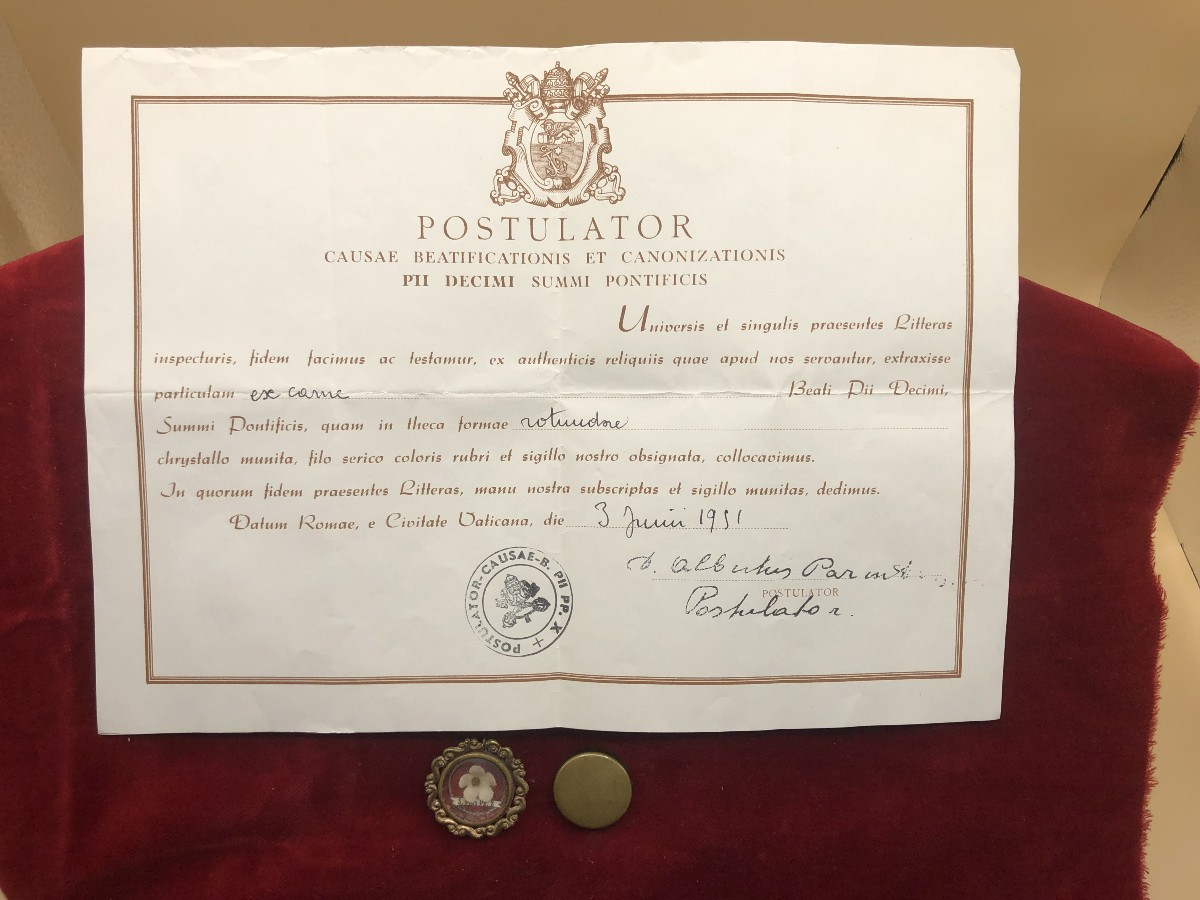 POSTULATOR
CAUSAE BEATIFICATIONIS ET CANONIZATIONIS
PII DECIMI SUMMI PONTIFICIS
Universis et singulis praesentes Litteras
inspecturis, fidem facimus ac testamur, ex authenticis reliquiis quae apud nos servantur, extraxisse
particulam ex carne Beati Pii Decimi,
Summi Pontificis, quam in theca formae rotundae
chrystallo munita, filo serico coloris rubri et sigillo nostro obsignata, collocavimus.
In quorum fidem praesentes Litteras, manu nostra subscriptas et sigillo munitas, dedimus.
Datum Romae, e Civitate Vaticana, die 3 Junii 1951
D. Albertus
POSTULATOR
Postulator.
POSTULATOR-CAUSAE-B. PII PP. X +